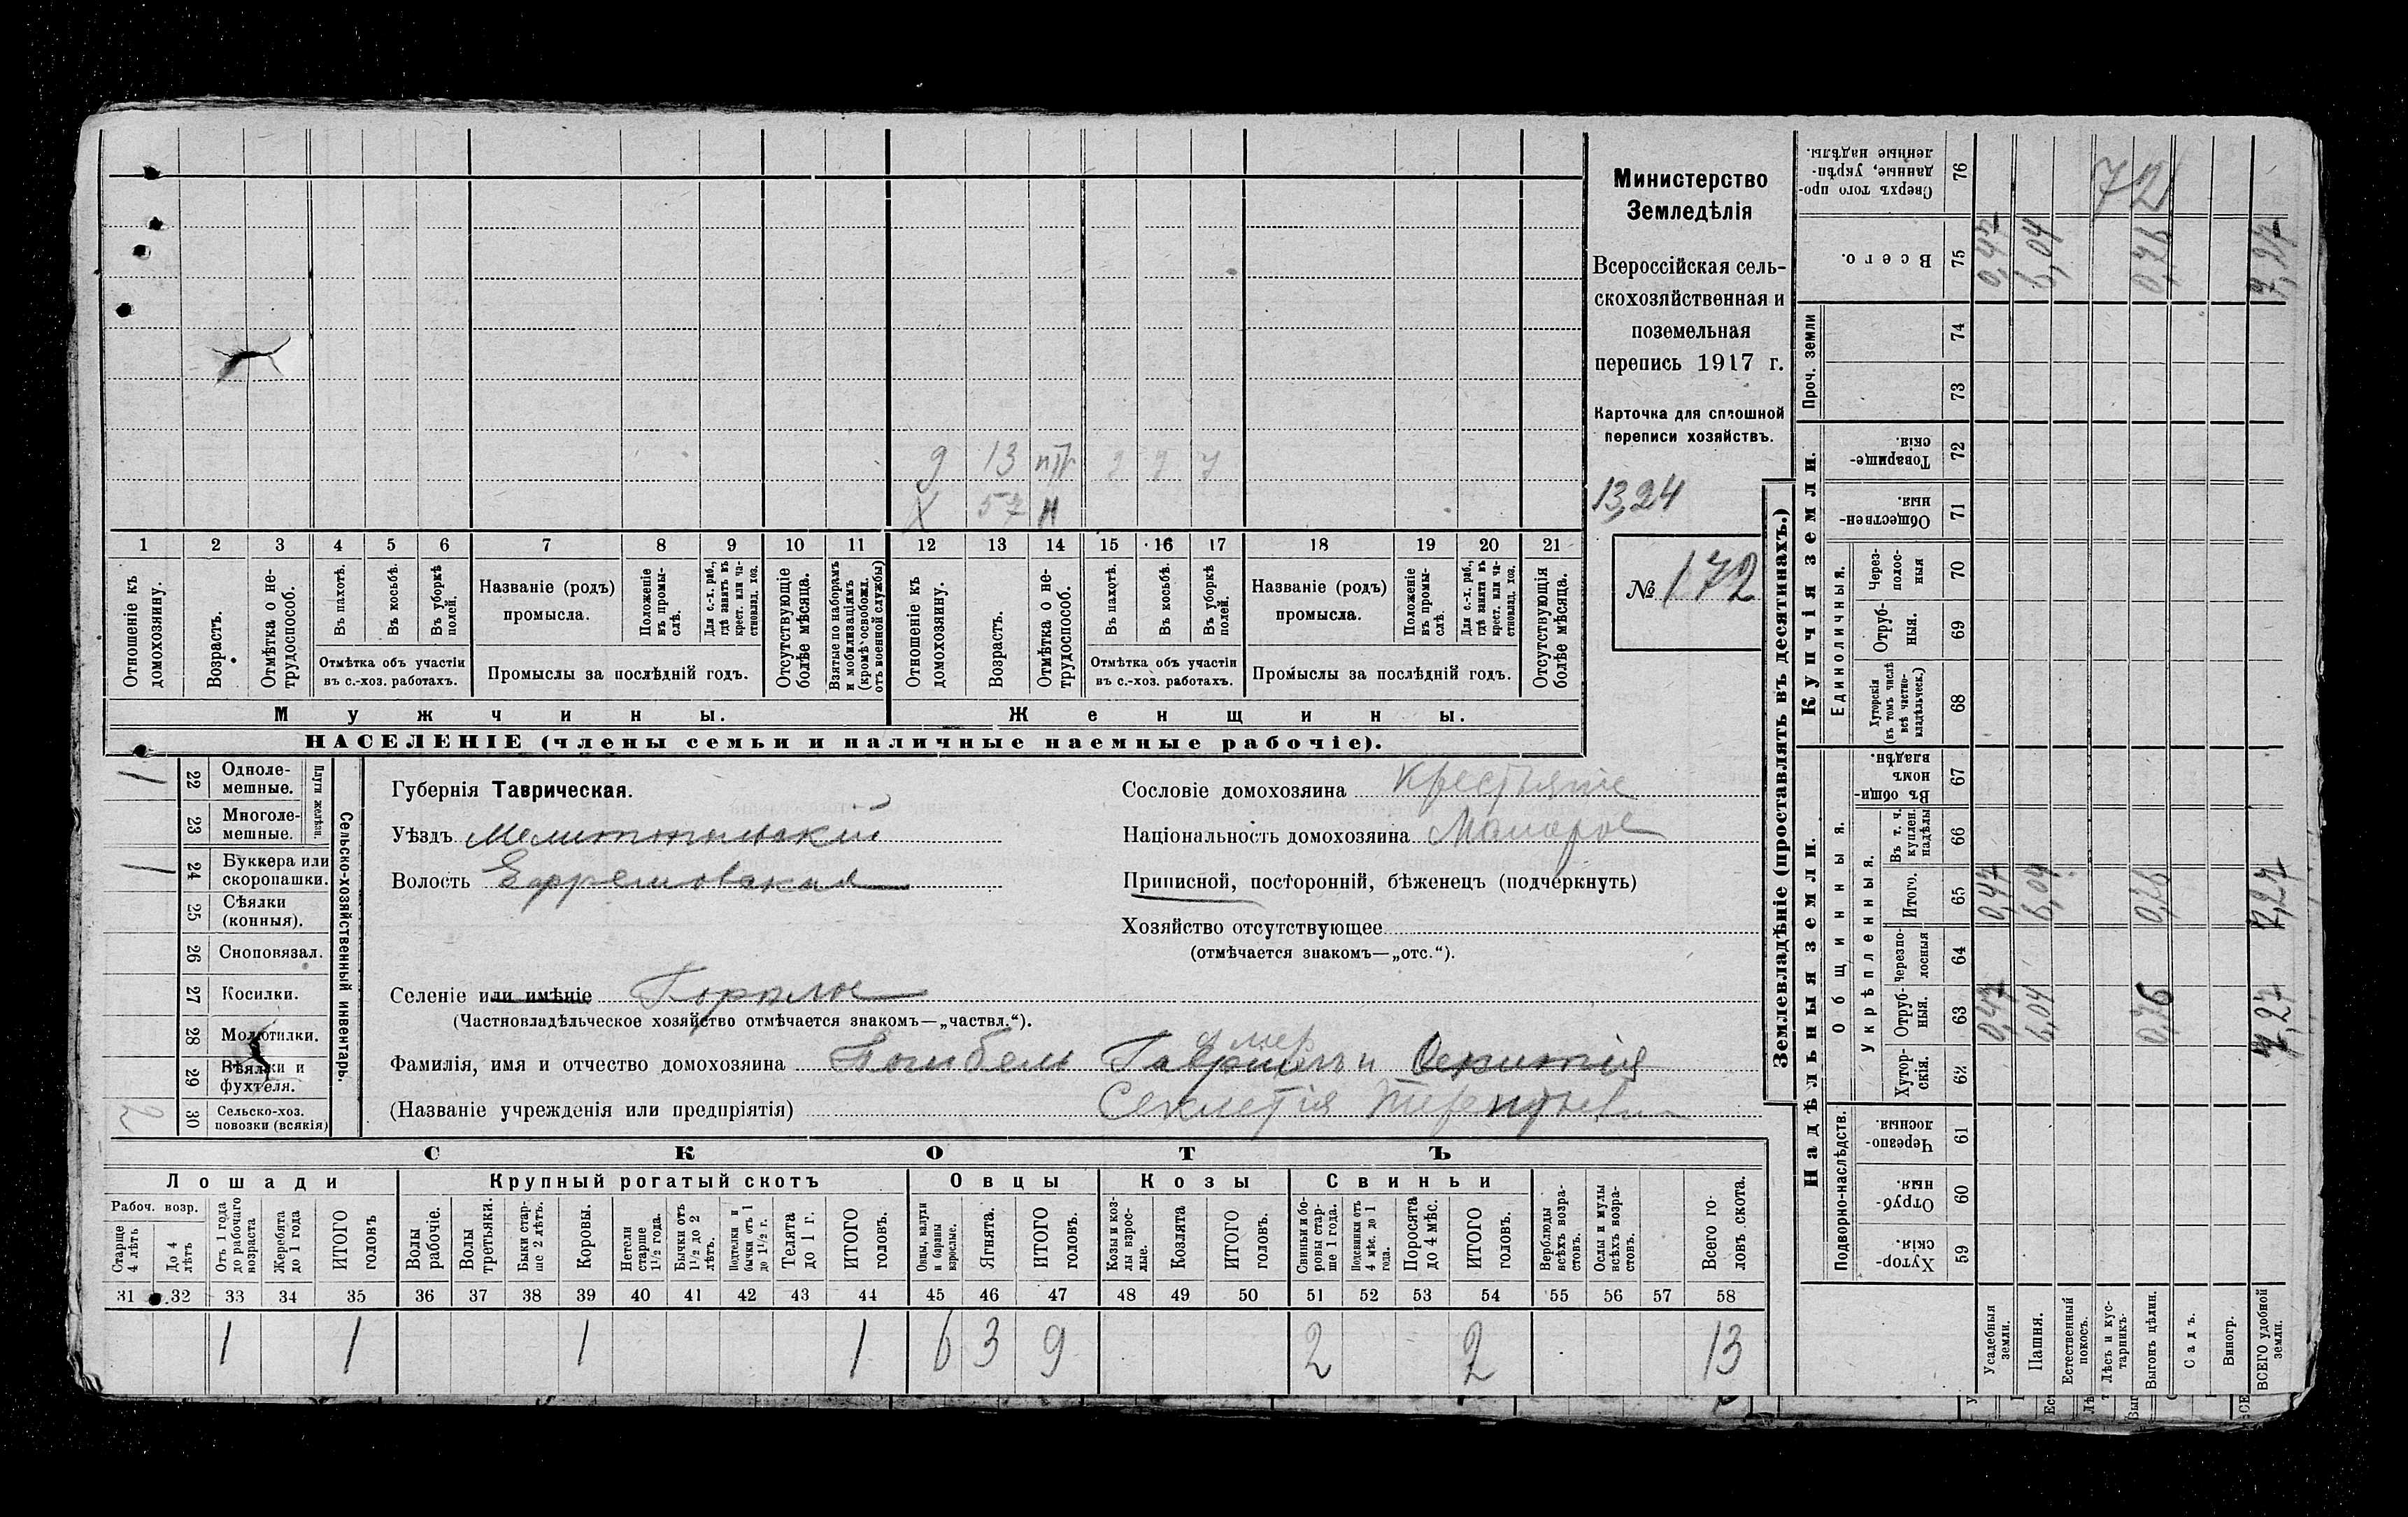 9 13 пП 2 7 7
Х 57 н
1 2 3 4 5 6 7 8 9 10 11 12 13 14 15 16 17 18 19 20 21
Отношеніе къ домохозяину.
Возрастъ.
Отмѣтка о нетрудоспособ.
Въ пахотѣ.
Въ косьбѣ.
Въ уборкѣ полей.
Отмѣтка объ участіи
въ с.-хоз. работахъ.
Названіе (родъ)
промысла.
Положеніе въ промыслѣ.
Для с.-х. раб., гдѣ занятъ въ крест. или частновлад. хоз.
Промыслы за послѣдній годъ.
Отсутствующіе болѣе мѣсяца.
Взятые по наборамъ и мобилизаціямъ (кромѣ освобожд. отъ военной службы)
Отношеніе къ домохозяину.
Возрастъ.
Отмѣтка о нетрудоспособ.
Въ пахотѣ.
Въ косьбѣ.
Въ уборкѣ полей.
Отмѣтка объ участіи
въ с.-хоз. работахъ.
Названіе (родъ)
промысла.
Положеніе въ промыслѣ.
Для с.-х. раб., гдѣ занята въ крест. или частновлад. хоз.
Промыслы за послѣдній годъ.
Отсутствующія болѣе мѣсяца.
Мужчины.
Женщины.
НАСЕЛЕНІЕ (члены семьи и наличные наемные рабочіе).
Министерство
Земледѣлія
Всероссійская сель-
скохозяйственная и
поземельная
перепись 1917 г.
Карточка для сплошной
переписи хозяйствъ.
13,24
№ 172
1 22 Одноле-
мешные.
23 Многоле-
мешные.
Плуги желѣзн.
1 24 Буккера или
скоропашки.
25 Сѣялки
(конныя).
26 Сноповязал.
27 Косилки.
28 Молотилки.
29 Вѣялки и
фухтеля.
2 30 Сельско-хоз.
повозки (всякія)
Сельско-хозяйственный инвентарь.
Губернія Таврическая.
Уѣздъ Мелитопольскій
Волость Ефремовская
Селеніе или имѣніе Горѣлое
(Частновладѣльческое хозяйство отмѣчается знакомъ—„частвл.“).
умер
Фамилія, имя и отчество домохозяина Погибель Гавріилъ и
(Названіе учрежденія или предпріятія) Секлетія Терентьевн
Сословіе домохозяина крестьяне
Національность домохозяина Малорос
Приписной, посторонній, бѣженецъ (подчеркнуть)
Хозяйство отсутствующее
(отмѣчается знакомъ—„отс.“).
СКОТЪ
Лошади
Крупный рогатый скотъ
Овцы
Козы
Свиньи
Рабоч. возр.
Старше 4 лѣтъ
До 4 лѣтъ
Отъ 1 года до рабочаго возраста
Жеребята до 1 года
ИТОГО головъ
Волы рабочіе.
Волы третьяки.
Быки старше 2 лѣтъ.
Коровы.
Нетели старше 1½ года.
Бычки отъ 1½ до 2 лѣтъ.
Подтелки и бычки отъ 1 до 1½ г.
Телята до 1 г.
ИТОГО головъ.
Овцы, валухи и бараны взрослые.
Ягнята.
ИТОГО головъ.
Козы и козлы взрослые.
Козлята
ИТОГО головъ.
Свиньи и боровы старше 1 года.
Подсвинки отъ 4 мѣс. до 1 года.
Поросята до 4 мѣс.
ИТОГО головъ.
Верблюды всѣхъ возрастовъ.
Ослы и мулы всѣхъ возрастовъ.
Всего головъ скота.
31 32 33 34 35 36 37 38 39 40 41 42 43 44 45 46 47 48 49 50 51 52 53 54 55 56 57 58
1 1 1 1 6 3 9 2 2 13
Землевладѣніе (проставлять въ десятинахъ.)
Купчія земли.
Надѣльныя земли.
Проч. земли
Единоличныя.
Общинныя.
Укрѣпленныя.
Подворно-наслѣдств.
Сверхъ того проданные, укрѣпленные надѣлы. 76
72
Всего. 75 0,47 6,04 0,76 7,27
74
73
Товарищескія. 72
Общественныя. 71
Черезполосныя 70
Отрубныя. 69
Хуторскія (въ томъ числѣ всѣ частновладѣльческ.) 68
Въ общинномъ владѣн. 67
Въ т. ч. куплен. надѣлы 66
Итого. 65 0,47 6,04 0,76 7,27
Черезполосныя 64
Отрубныя. 63 0,47 6,04 0,76 7,27
Хуторскія. 62
Черезполосныя. 61
Отрубныя. 60
Хуторскія. 59
Усадебныя земли.
Пашня.
Естественный покосъ.
Лѣсъ и кустарникъ.
Выгонъ цѣлин.
Садъ.
Виногр.
ВСЕГО удобной земли.